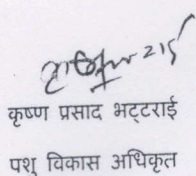 कृष्ण प्रसाद भट्टराई
पशु विकास अधिकृत